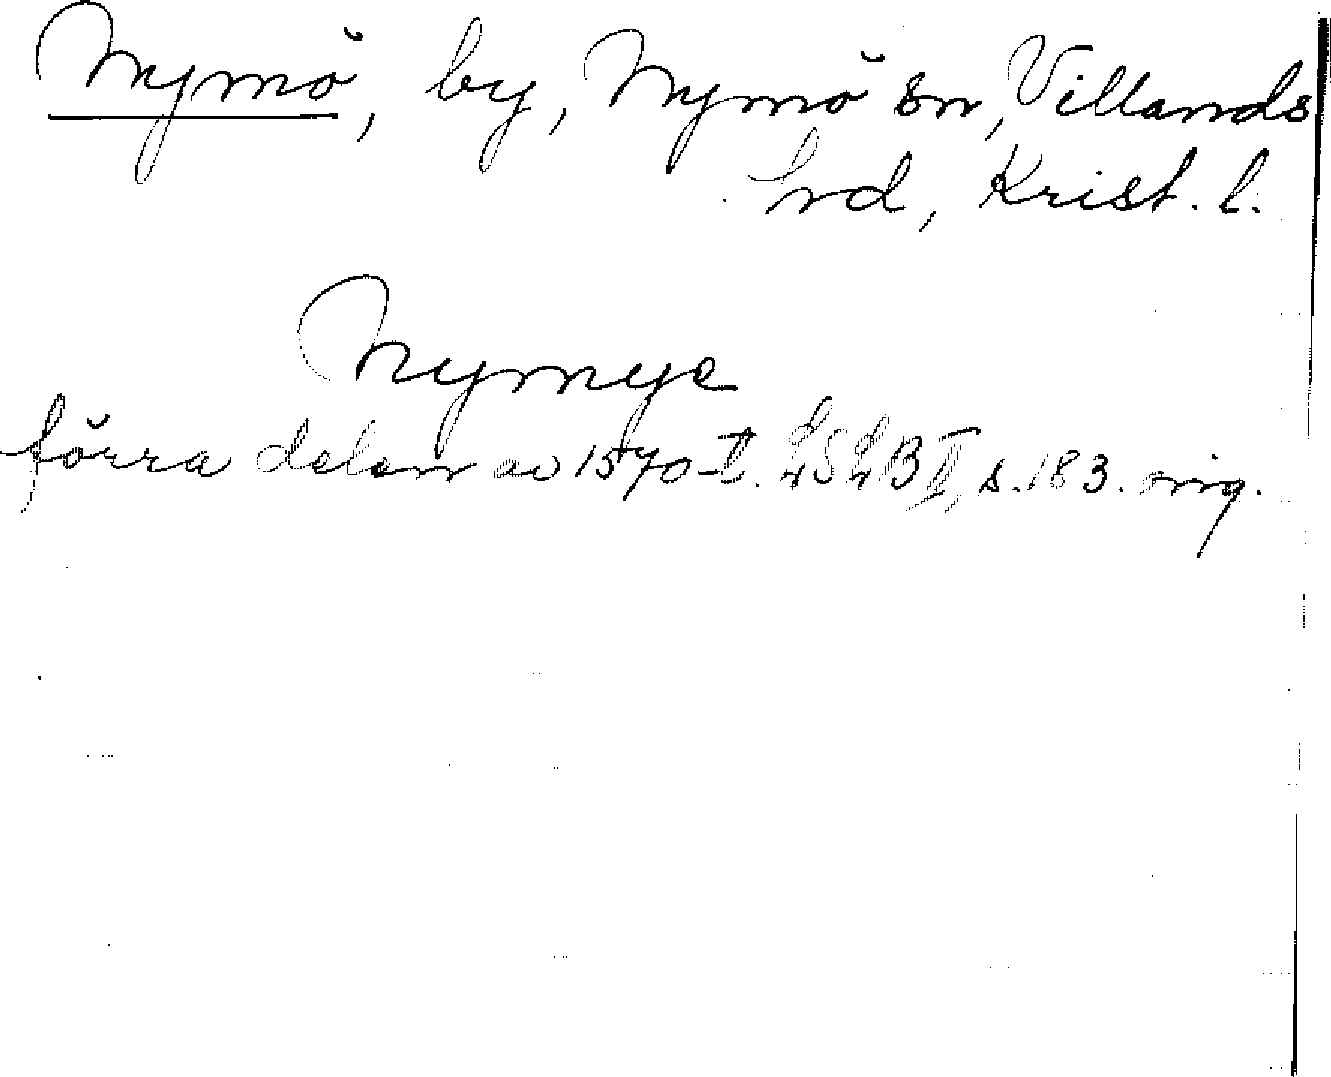 Nymö, by, Nymö sn, Villands
hrd, Krist. l.
Nymye
förra delen av 1570-t. LSLB II, s. 183. orig.